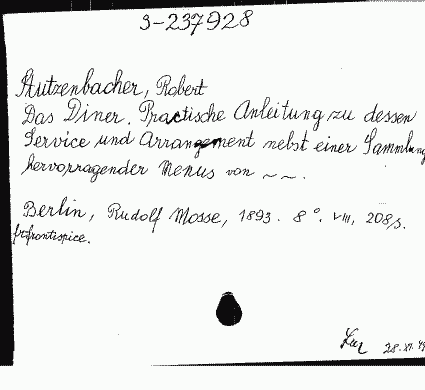 3-237928
Stutzenbacher, Robert
Das Diner. Practische Anleitung zu dessen
Service und Arrangement nebst einer Sammlung
hervorragender Menus von ~ ~.
Berlin, Rudolf Mosse, 1893. 8°. VIII, 208 s.
frontispice.
28.